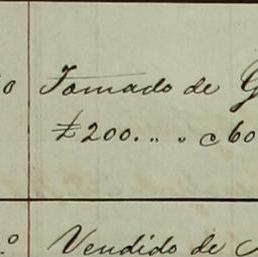 0 Tomado de G
£200.. " c 60
.º Vendido de